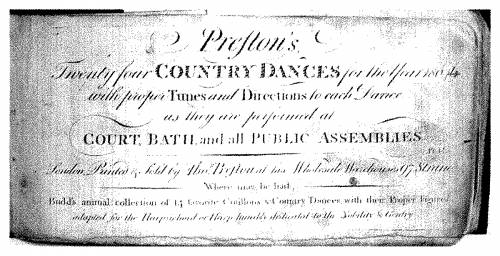 Preston's
Twenty four COUNTRY DANCES for the Year 180
with proper Tunes and Directions to each Dance
as they are performed at
COURT, BATH, and all PUBLIC ASSEMBLIES
London, Printed & Sold by Thos. Preston at his Wholesale Warehouses 97 Strand
Where may be had,
Budd's annual collection of 14 favorite Cotillons & Country Dances with their Proper Figures
adapted for the Harpsichord or Harp humbly dedicated to the Nobility & Gentry